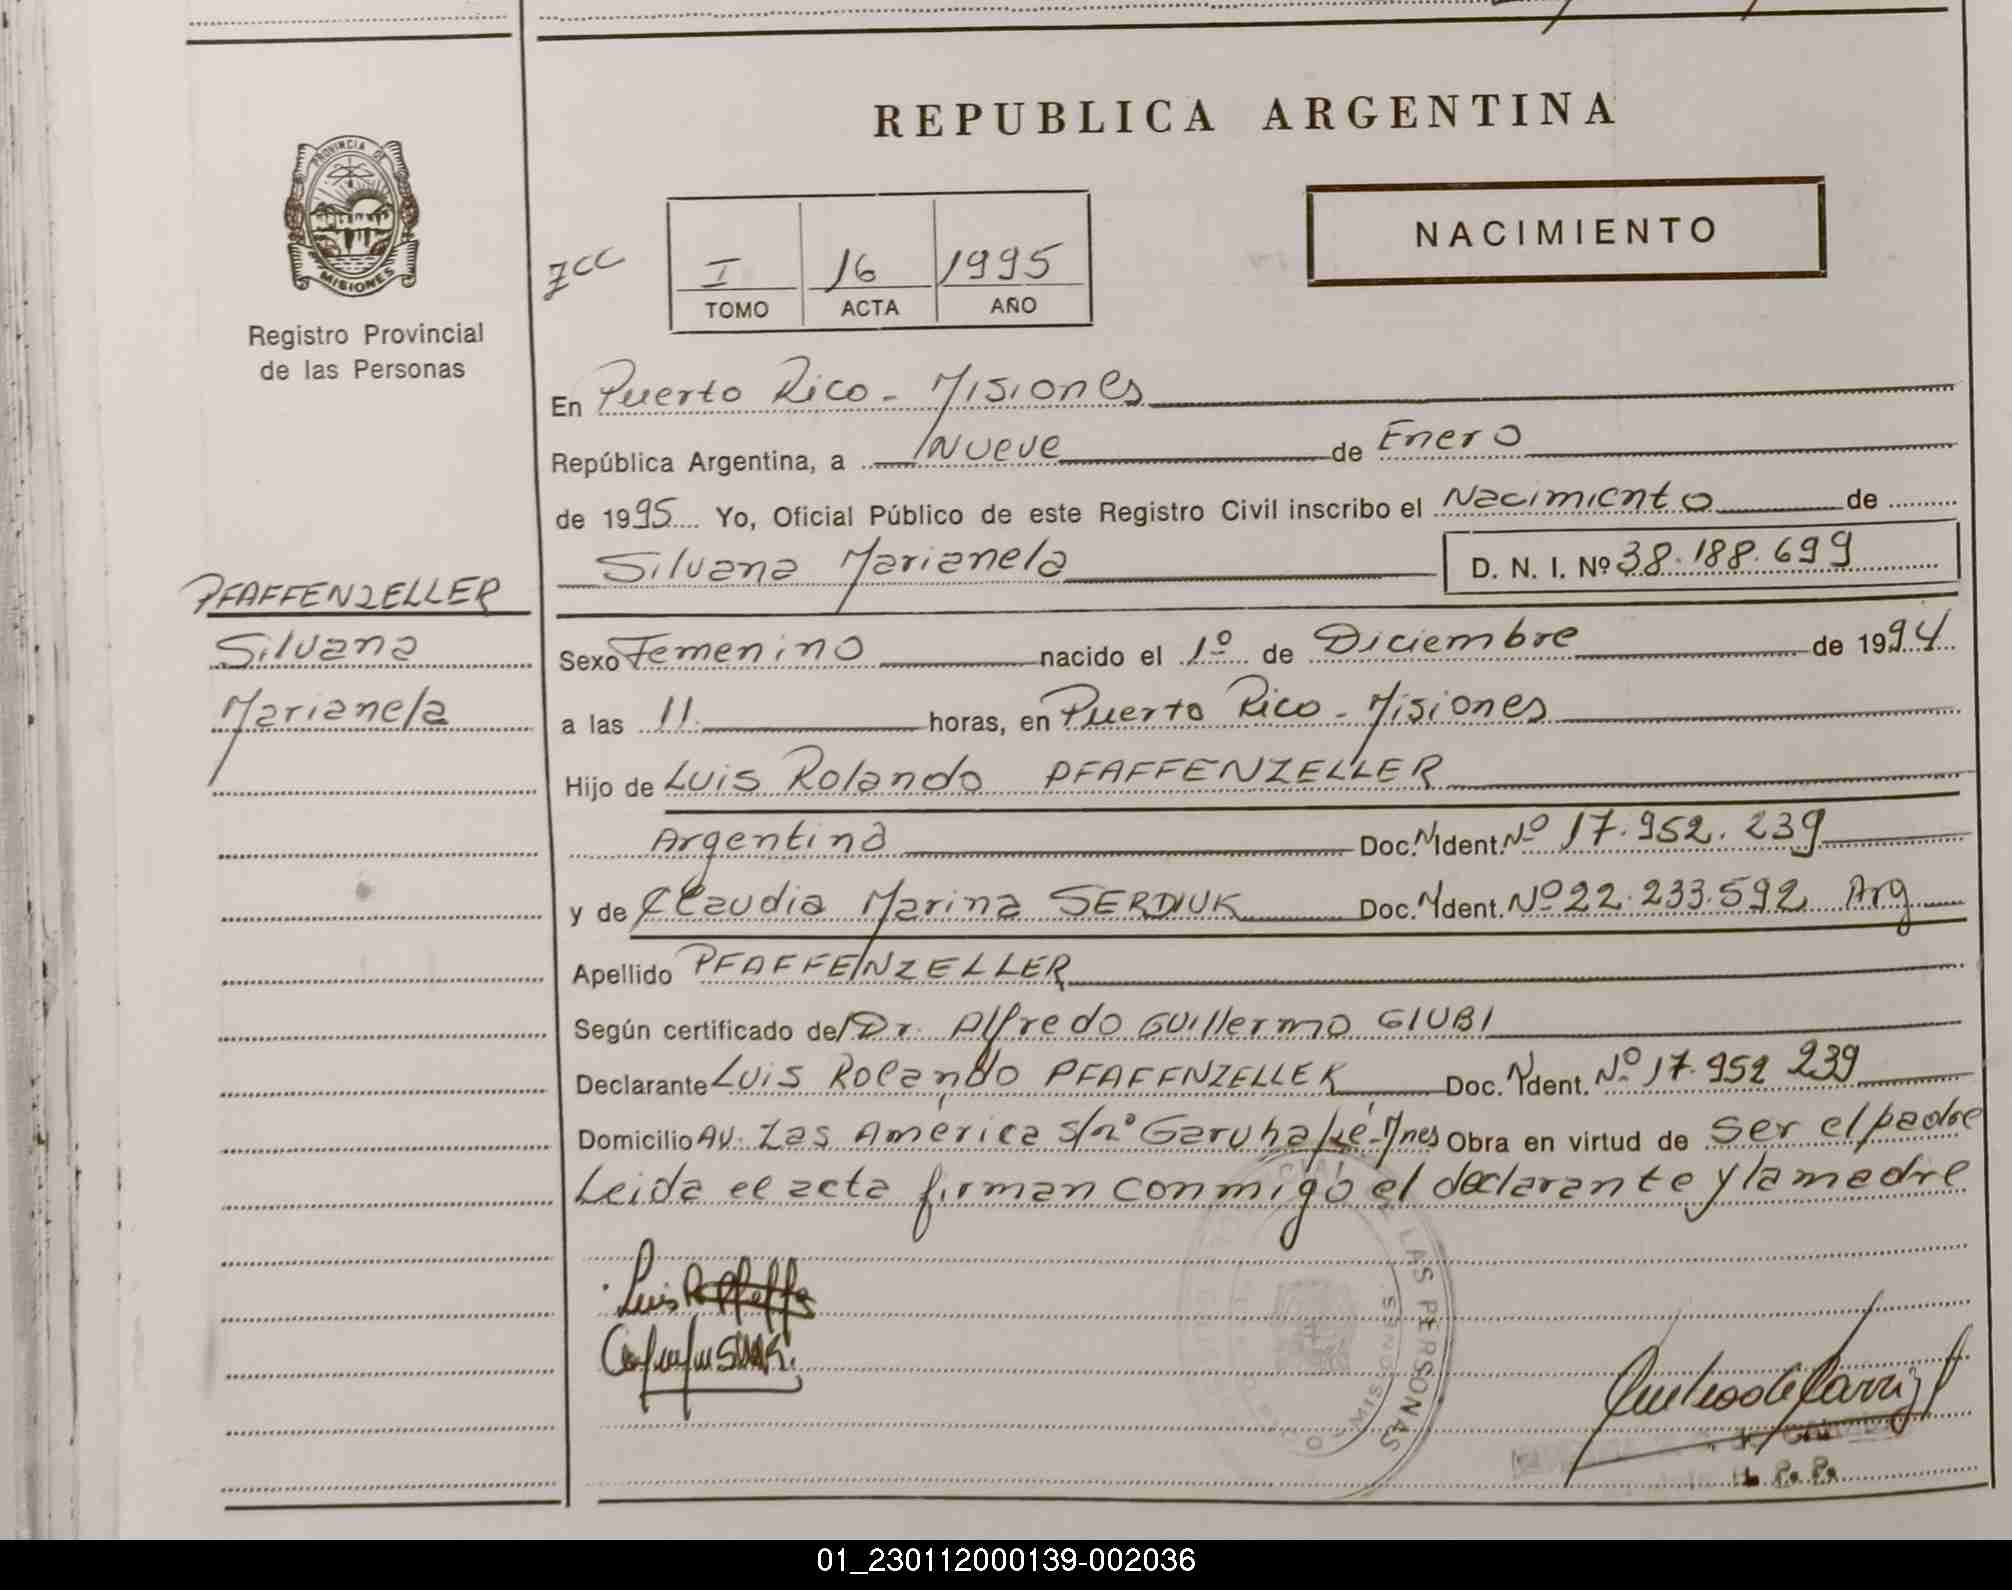 REPUBLICA ARGENTINA
PROVINCIA DE
MISIONES
Registro Provincial
de las Personas
NACIMIENTO
I 16 1995
TOMO ACTA AÑO
En Puerto Rico - Misiones
República Argentina, a Nueve de Enero
de 1995 Yo, Oficial Público de este Registro Civil inscribo el Nacimiento de
Silvana Marianela D. N. I. Nº 38.188.699
PFAFFENZELLER
Silvana
Marianela
Sexo Femenino nacido el 1º de Diciembre de 1994
a las 11 horas, en Puerto Rico - Misiones
Hijo de Luis Rolando PFAFFENZELLER
Argentina Doc. N Ident. Nº 17.952.239
y de Claudia Marina SERDIUK Doc. N Ident. Nº 22.233.592 Arg
Apellido PFAFFENZELLER
Según certificado de Dr. Alfredo Guillermo GIUBI
Declarante Luis Rolando PFAFFENZELLER Doc. N Ident. Nº 17.952 239
Domicilio Av. Las América s/nº Garuhapé-Mnes Obra en virtud de ser el padre
Leida el acta firman conmigo el declarante y la madre
LAS PERSONAS
MISIONES
01_230112000139-002036